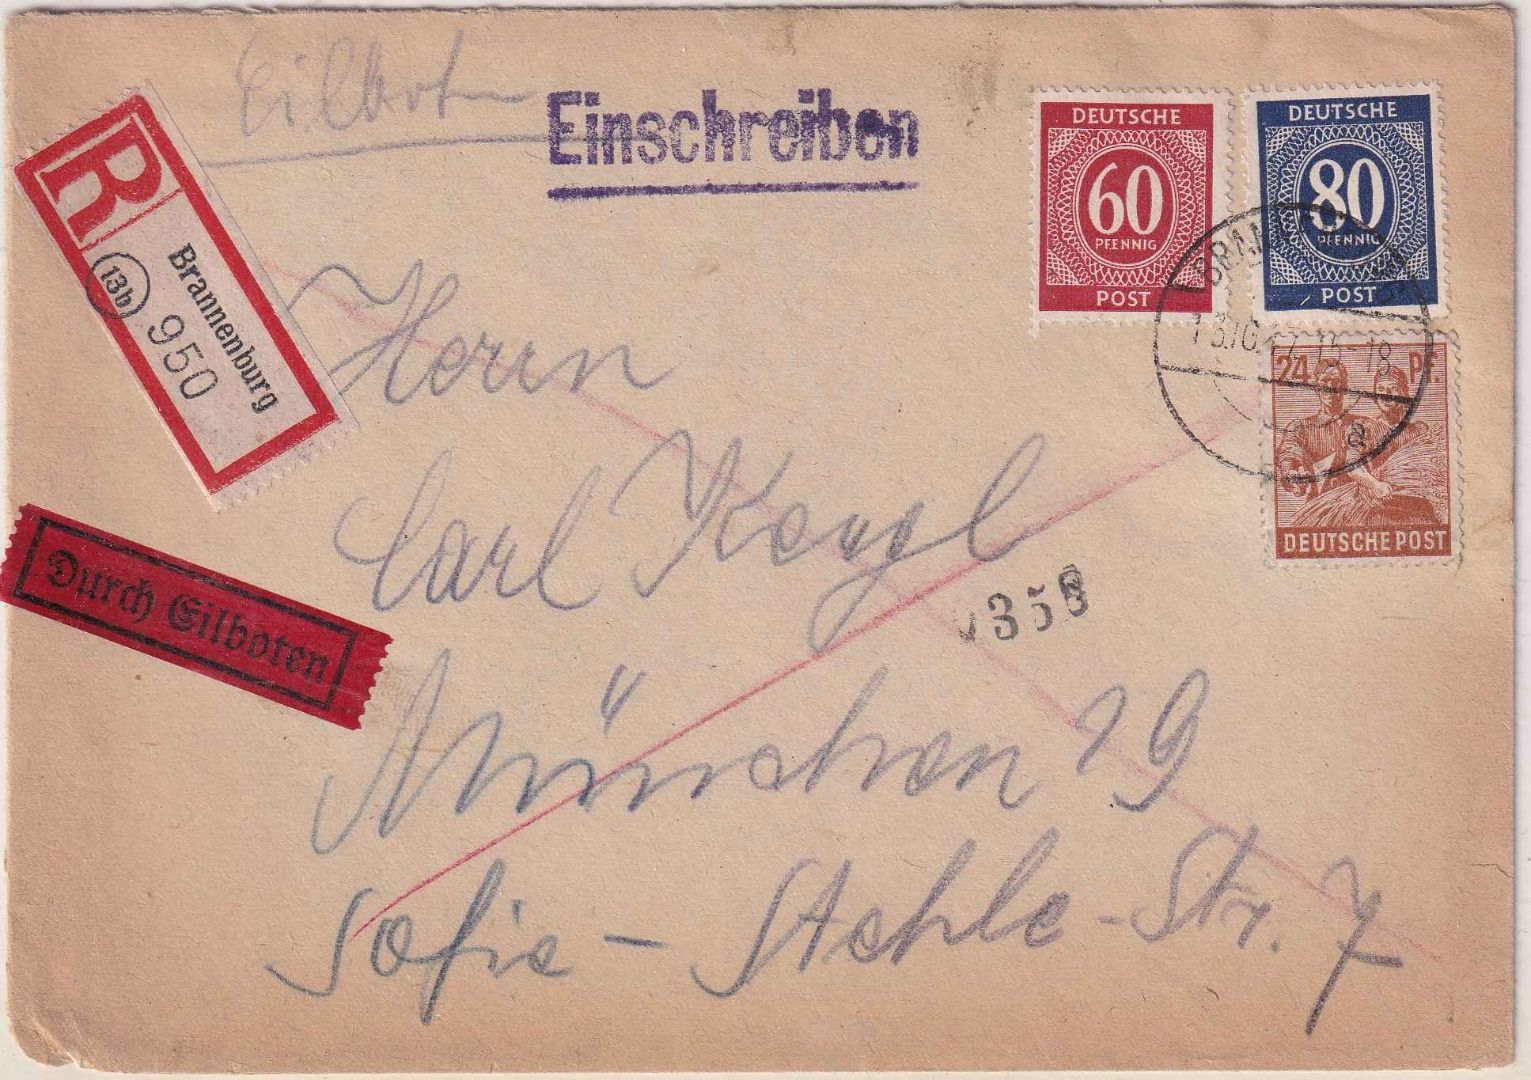 Eilboten
Einschreiben
R
Brannenburg
(13b)
950
Durch Eilboten
DEUTSCHE
60
PFENNIG
POST
DEUTSCHE
80
PFENNIG
POST
24 PF.
DEUTSCHE POST
15-18
a
Herrn
Carl
München 19
Sofie - Stehle - Str. 7
358